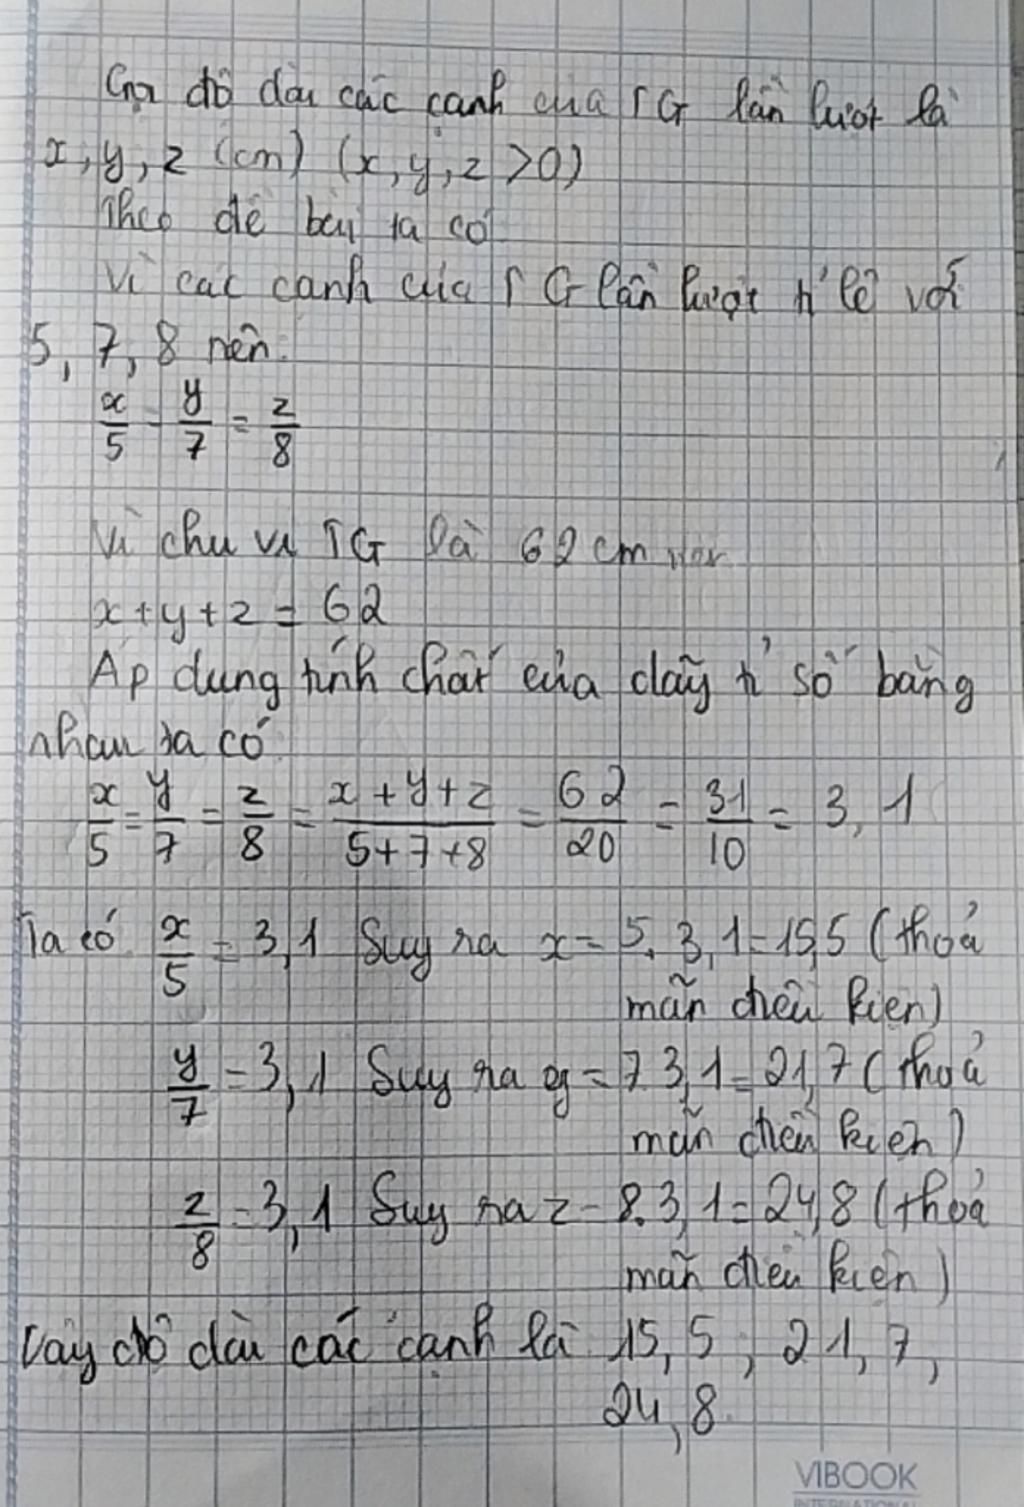 Gọi độ dài các cạnh của TG lần lượt là
x, y, z (cm) (x, y, z >0)
Theo đề bài ta có
Vì các cạnh của TG lần lượt tỉ lệ với
5, 7, 8 nên:
x/5 = y/7 = z/8
Vì chu vi TG là 62 cm nên
x + y + z = 62
Áp dụng tính chất của dãy tỉ số bằng
nhau ta có
x/5 = y/7 = z/8 = x + y + z / 5 + 7 + 8 = 62/20 = 31/10 = 3,1
Ta có x/5 = 3,1 Suy ra x = 5. 3,1 = 15,5 (thoả
mãn điều kiện)
y/7 = 3,1 Suy ra y = 7.3,1 = 21,7 (thoả
mãn điều kiện)
z/8 = 3,1 Suy ra z = 8.3,1 = 24,8 (thoả
mãn điều kiện)
Vậy độ dài các cạnh là 15,5 , 21,7,
24,8
VIBOOK
INTERNATIONAL